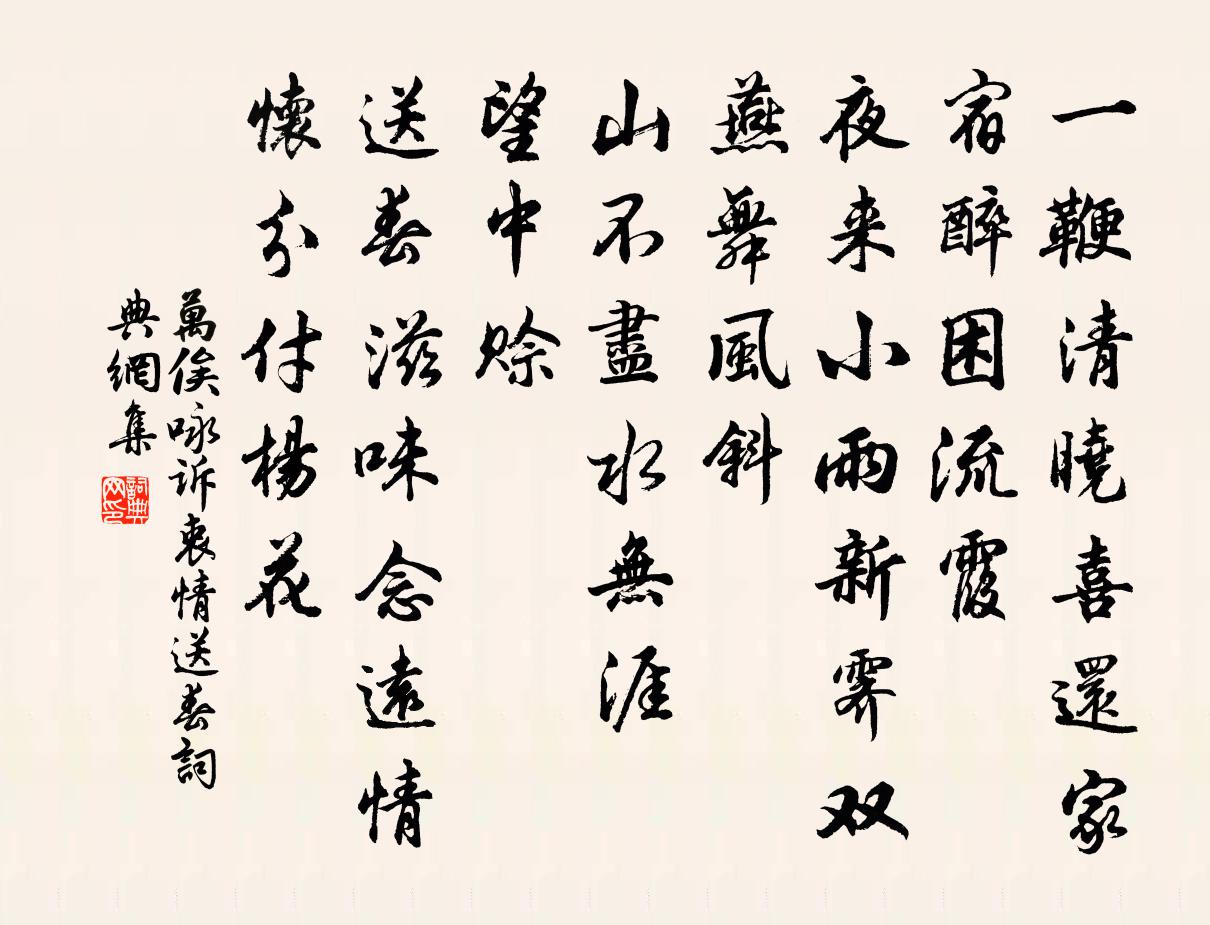 一鞭清曉喜還家
宿醉困流霞
夜来小雨新霽双
燕舞風斜
山不盡水無涯
望中賒
送春滋味念遠情
懷分付楊花
萬俟咏訴衷情送春詞
典網集
詞典
网印